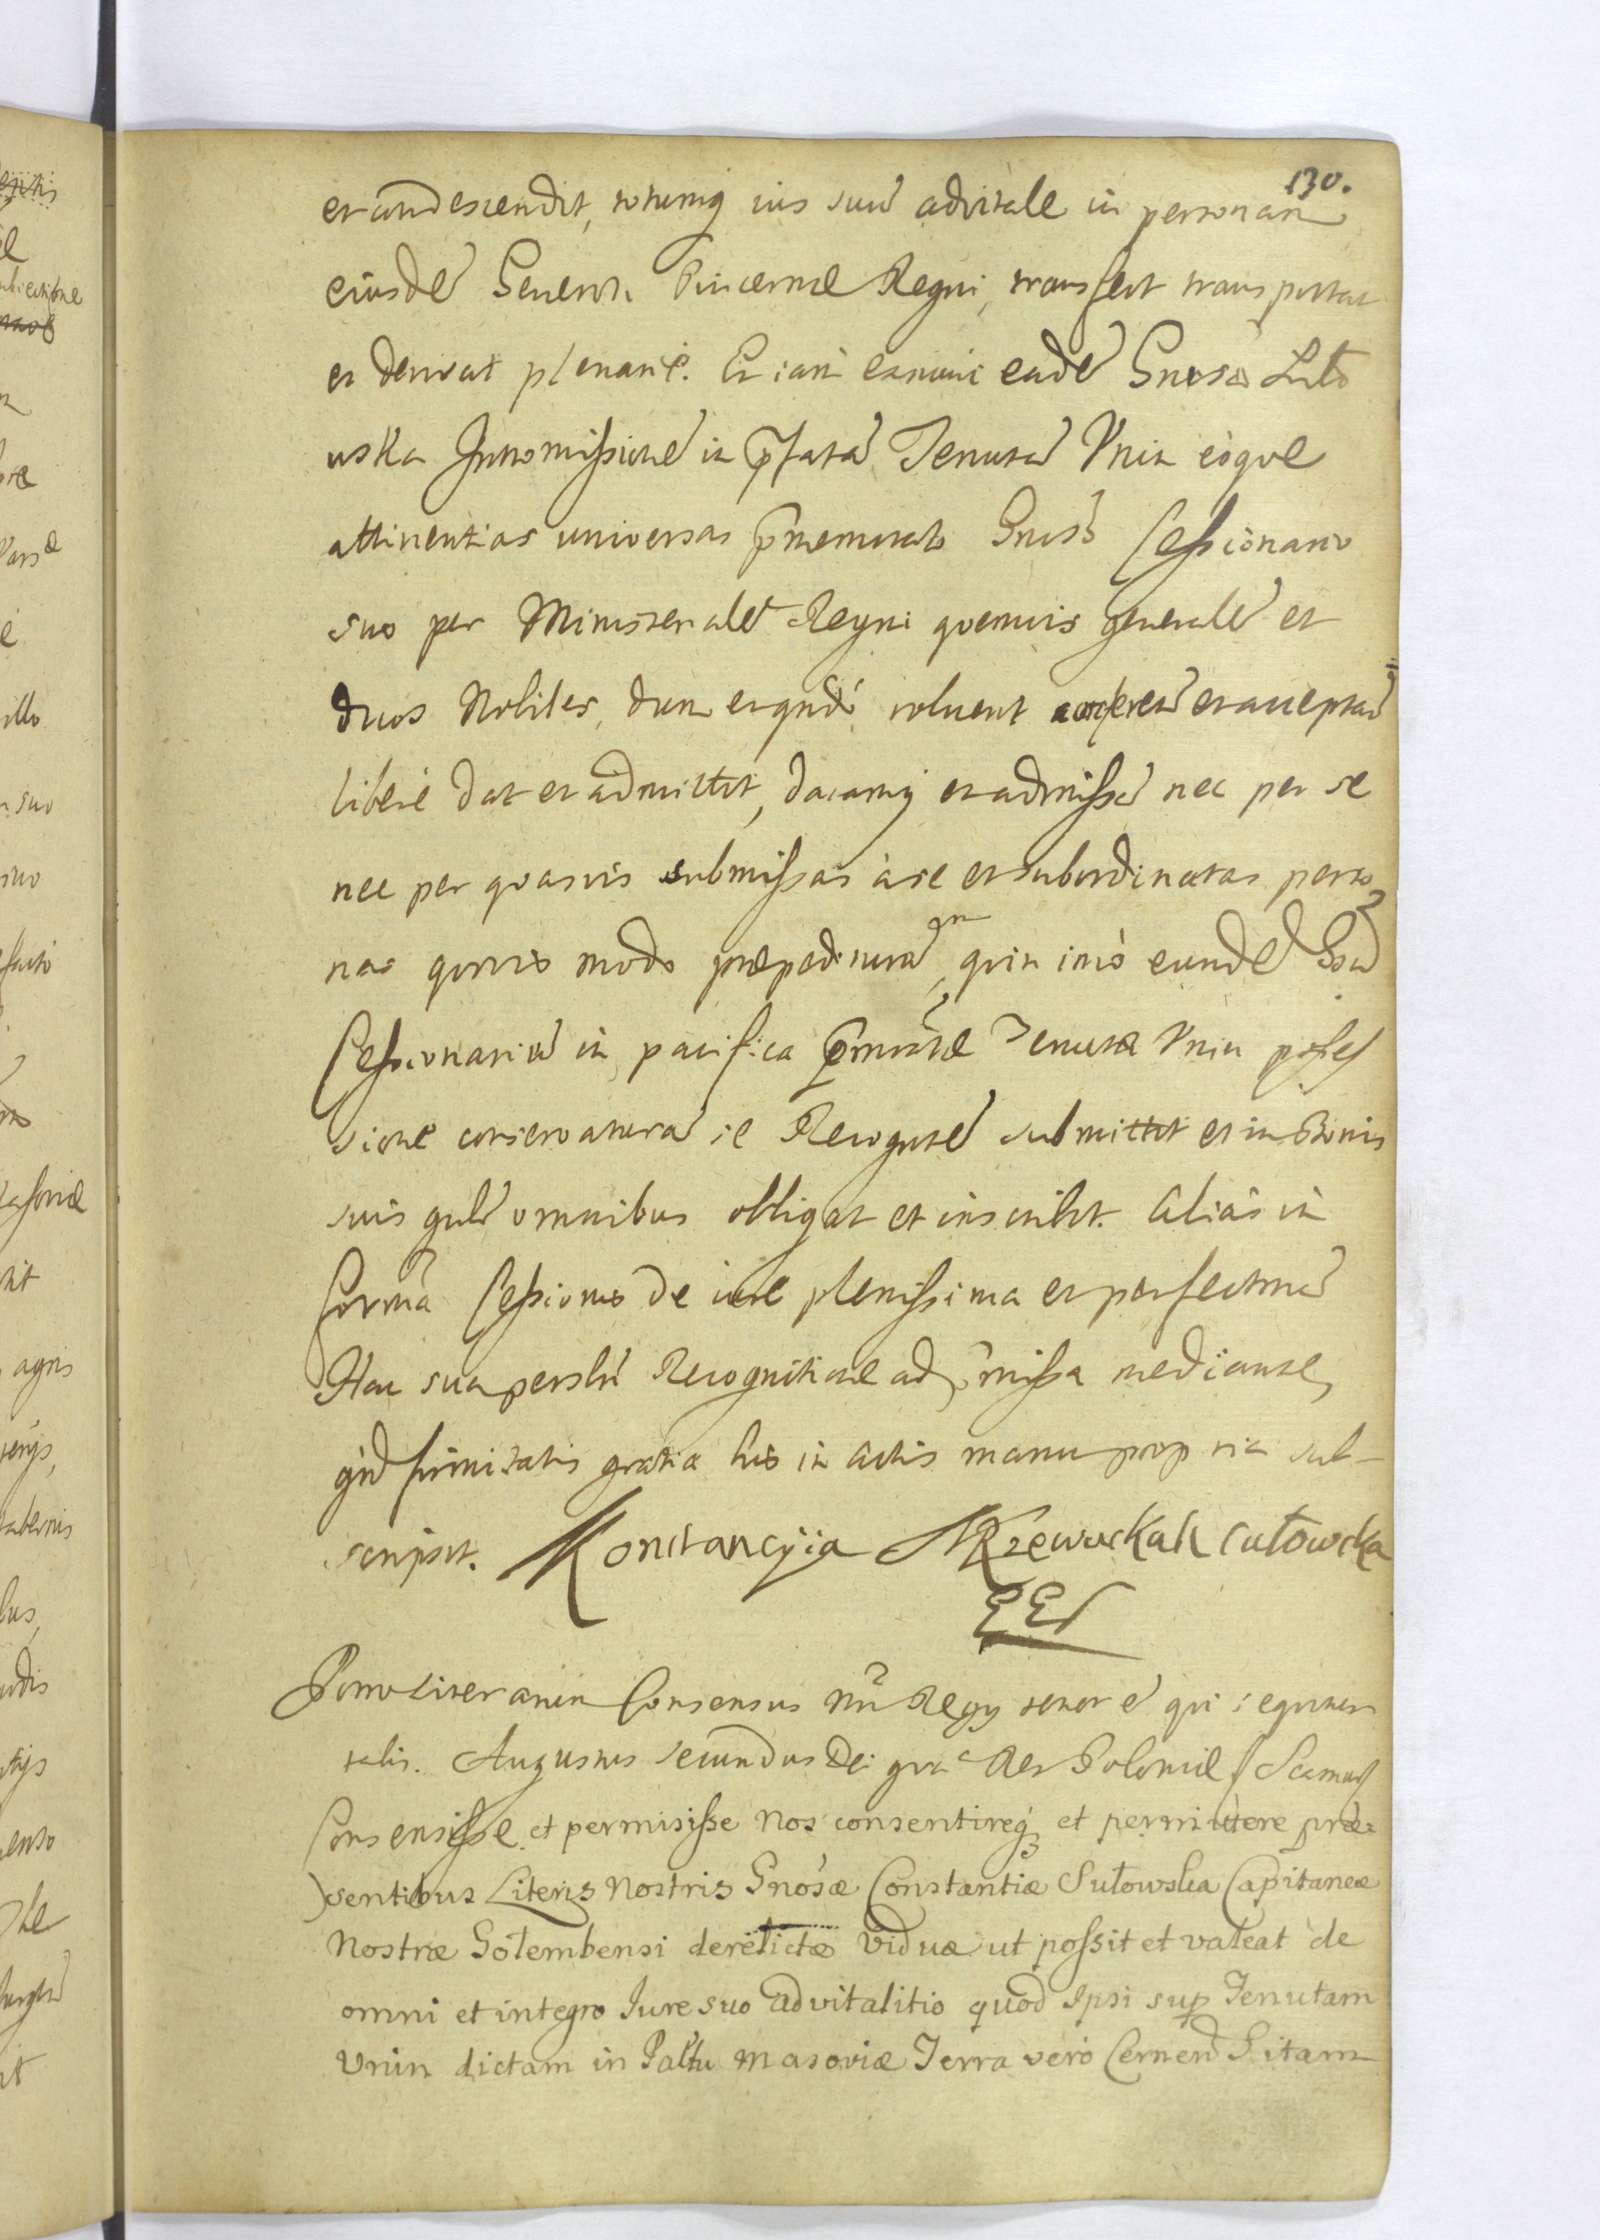 130.
et condescendit, totumq ius suũ advitale in personam
eiusdẽ Generosi Pincernæ Regni, transfert transportat
et derivat plenarie. Et iam exnunc eadẽ Gnosa Suło
wska Intromissionẽ in p̃fatã Tenutã Vnin eoque
attinentias universas p̃memorato Gnoso Cessionario
suo per Ministerialẽ Regni quemvis generalẽ et
duos Nobiles, dum et qndo voluerit et acceptãdã
libere dat et admittit, datamq et admissã nec per se
nec per quasvis submissas à se et subordinatas perso
nas quovis modo præpediturã, quin imò eundẽ Gsũ
Cessionariũ in pacifica p̃missæ Tenutæ Vnin posses
sione conservaturã se Recogntẽ submittit et in Bonis
suis gnlr omnibus obligat et inscribit. Alias in
Forma Cessionis de iure plenissima et perfectissimã
Hac sua personli Recognitione ad p̃missa mediante,
qnd firmitatis gratia his in Actis manu propria sub-
scripsit. Konstancyia SKRzewuckah Sułowcka
Porro Literarum Consensus Nr̃i Regij tenor ẽ qui sequitur
talis. Augustus Secundus Dei gra Rex Poloniæ // Scamus
Consensisse et permisisse Nos consentireq et permittere præ=
sentibus Literis Nostris Gnosæ Constantiæ Sułowska Capitaneæ
Nostræ Gołembensi derelictæ Viduæ ut possit et valeat de
omni et integro Jure suo advitalitio quod Ipsi sup Tenutam
Vnin dictam in Paltu Masoviæ Terra vero Cernen Sitam